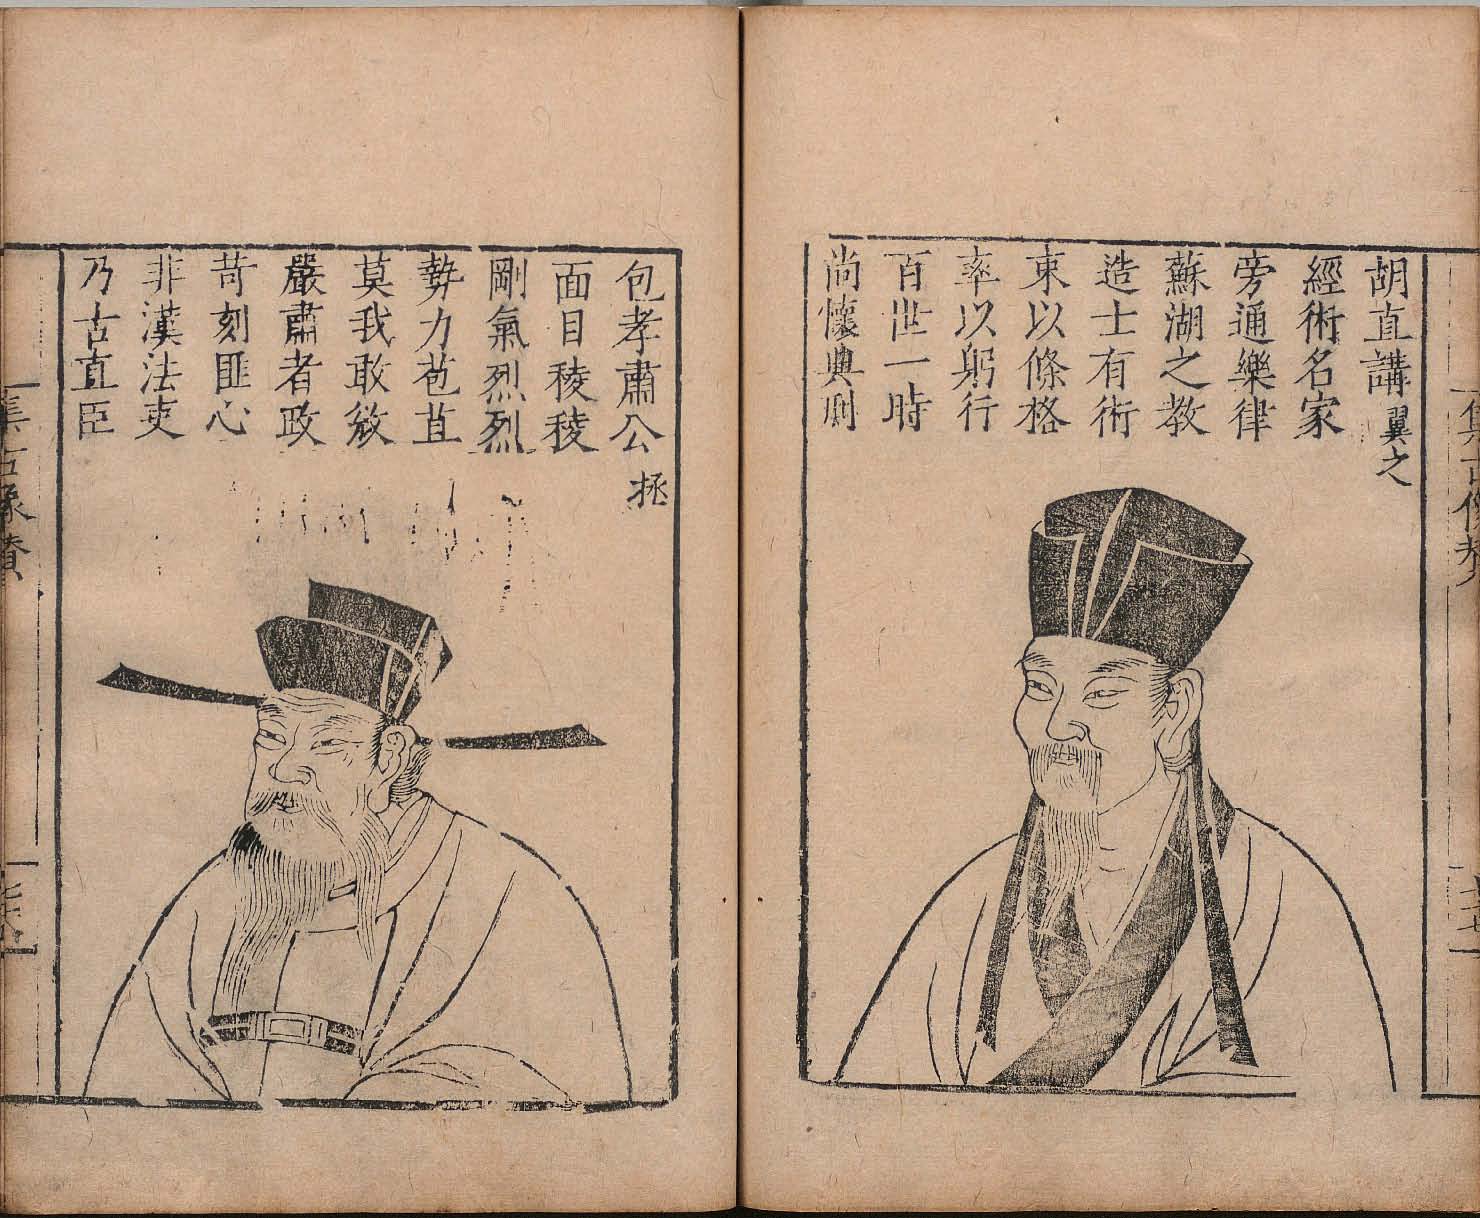 胡直講翼之
經術名家
旁通樂律
蘇湖之教
造士有術
東以條格
率以躬行
百世一時
尚懷典刑
包孝肅公拯
面目稜稜
剛氣烈烈
勢力苞苴
莫我敢効
嚴肅者政
苛刻匪心
非漢法吏
乃古直臣
集古像贊